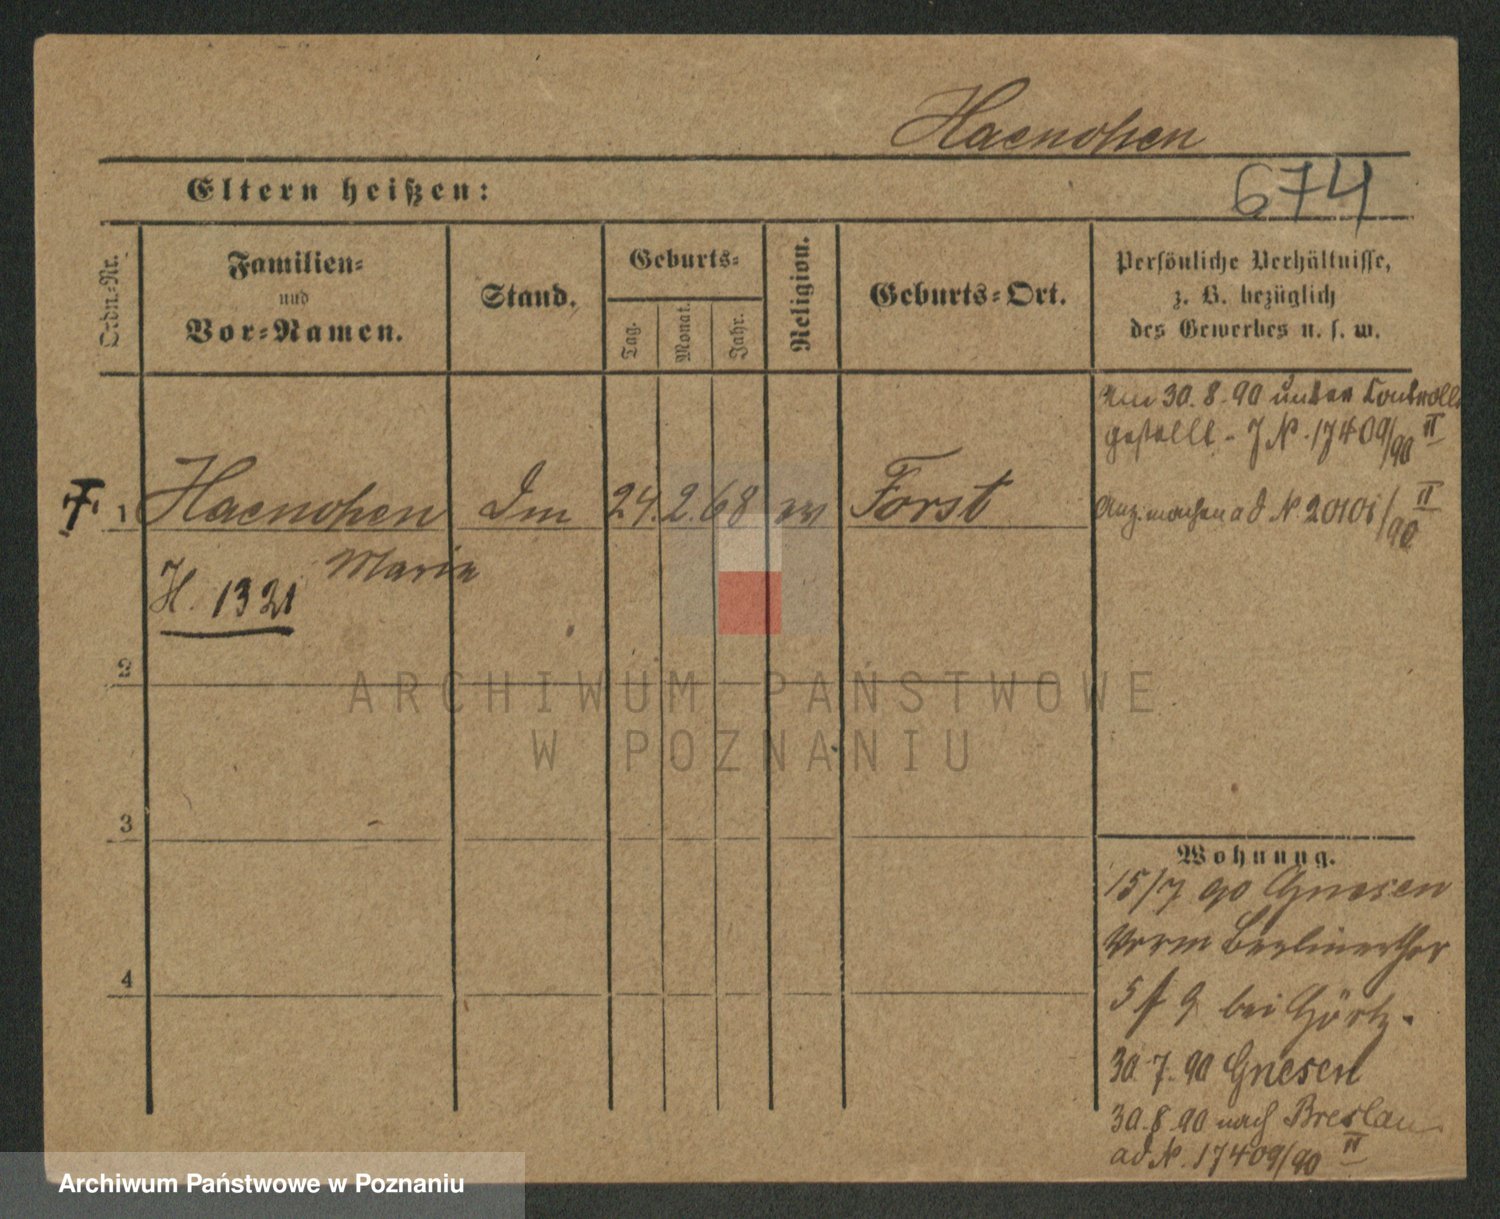 Haenohen
Eltern heißen:
674
Ordn.-Nr.
Familien-
und
Vor-Namen.
Stand.
Geburts-
Tag.
Monat.
Jahr.
Religion.
Geburts-Ort.
Persönliche Verhältnisse,
z. B. bezüglich
des Gewerbes u. s. w.
Am 30. 8. 90 unter Controlle
gestellt. J N. 17409/90 II
1 Haenohen
24. 2. 68 ev Forst
ad N. 20101/90 II
Marie
H. 1321
2
ARCHIWUM PAŃSTWOWE
W POZNANIU
3
Wohnung.
15/7 90 Gnesen
Berlinerthor
5 bei Görtz.
4
30. 7. 90 Gnesen
30. 8. 90 nach Breslau
ad N. 17409/90 II
Archiwum Państwowe w Poznaniu